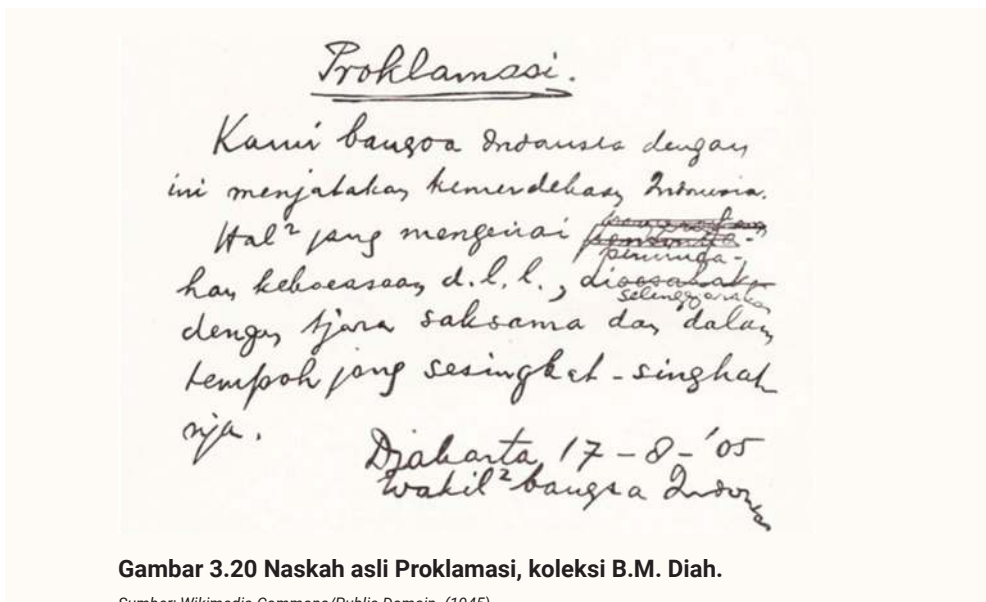 Proklamasi.
Kami bangsa Indonesia dengan
ini menjatakan kemerdekaan Indonesia.
Hal² jang mengenai
peminda-
han kekoeasaan d.l.l.,
diselenggarakan
dengan tjara saksama dan dalam
tempoh jang sesingkat-singkat
nja.
Djakarta 17-8-'05
Wakil² bangsa Indonesia
Gambar 3.20 Naskah asli Proklamasi, koleksi B.M. Diah.
Sumber: Wikimedia Commons/Public Domain. (1945)